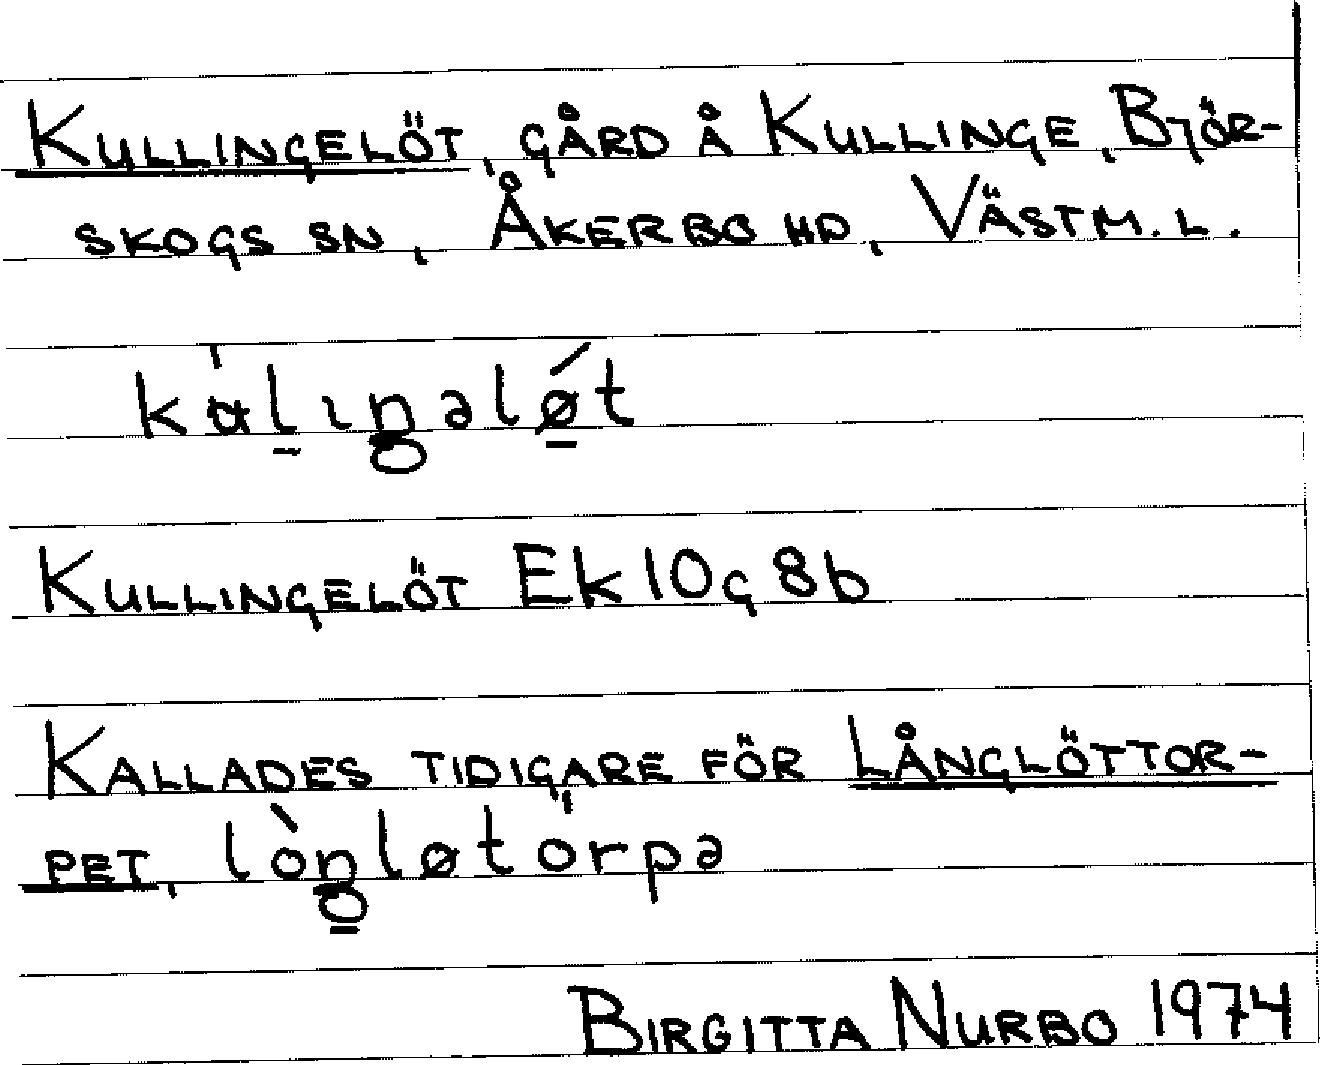 Kullingelöt, gård å Kullinge, Björ-
skogs sn, Åkerbo hd, Västm. l.
kɑ̍lıŋəlǿt
Kullingelöt Ek 10g 8b
Kallades tidigare för Långlöttor-
pet, lòŋløto̍rpə
Birgitta Nurbo 1974